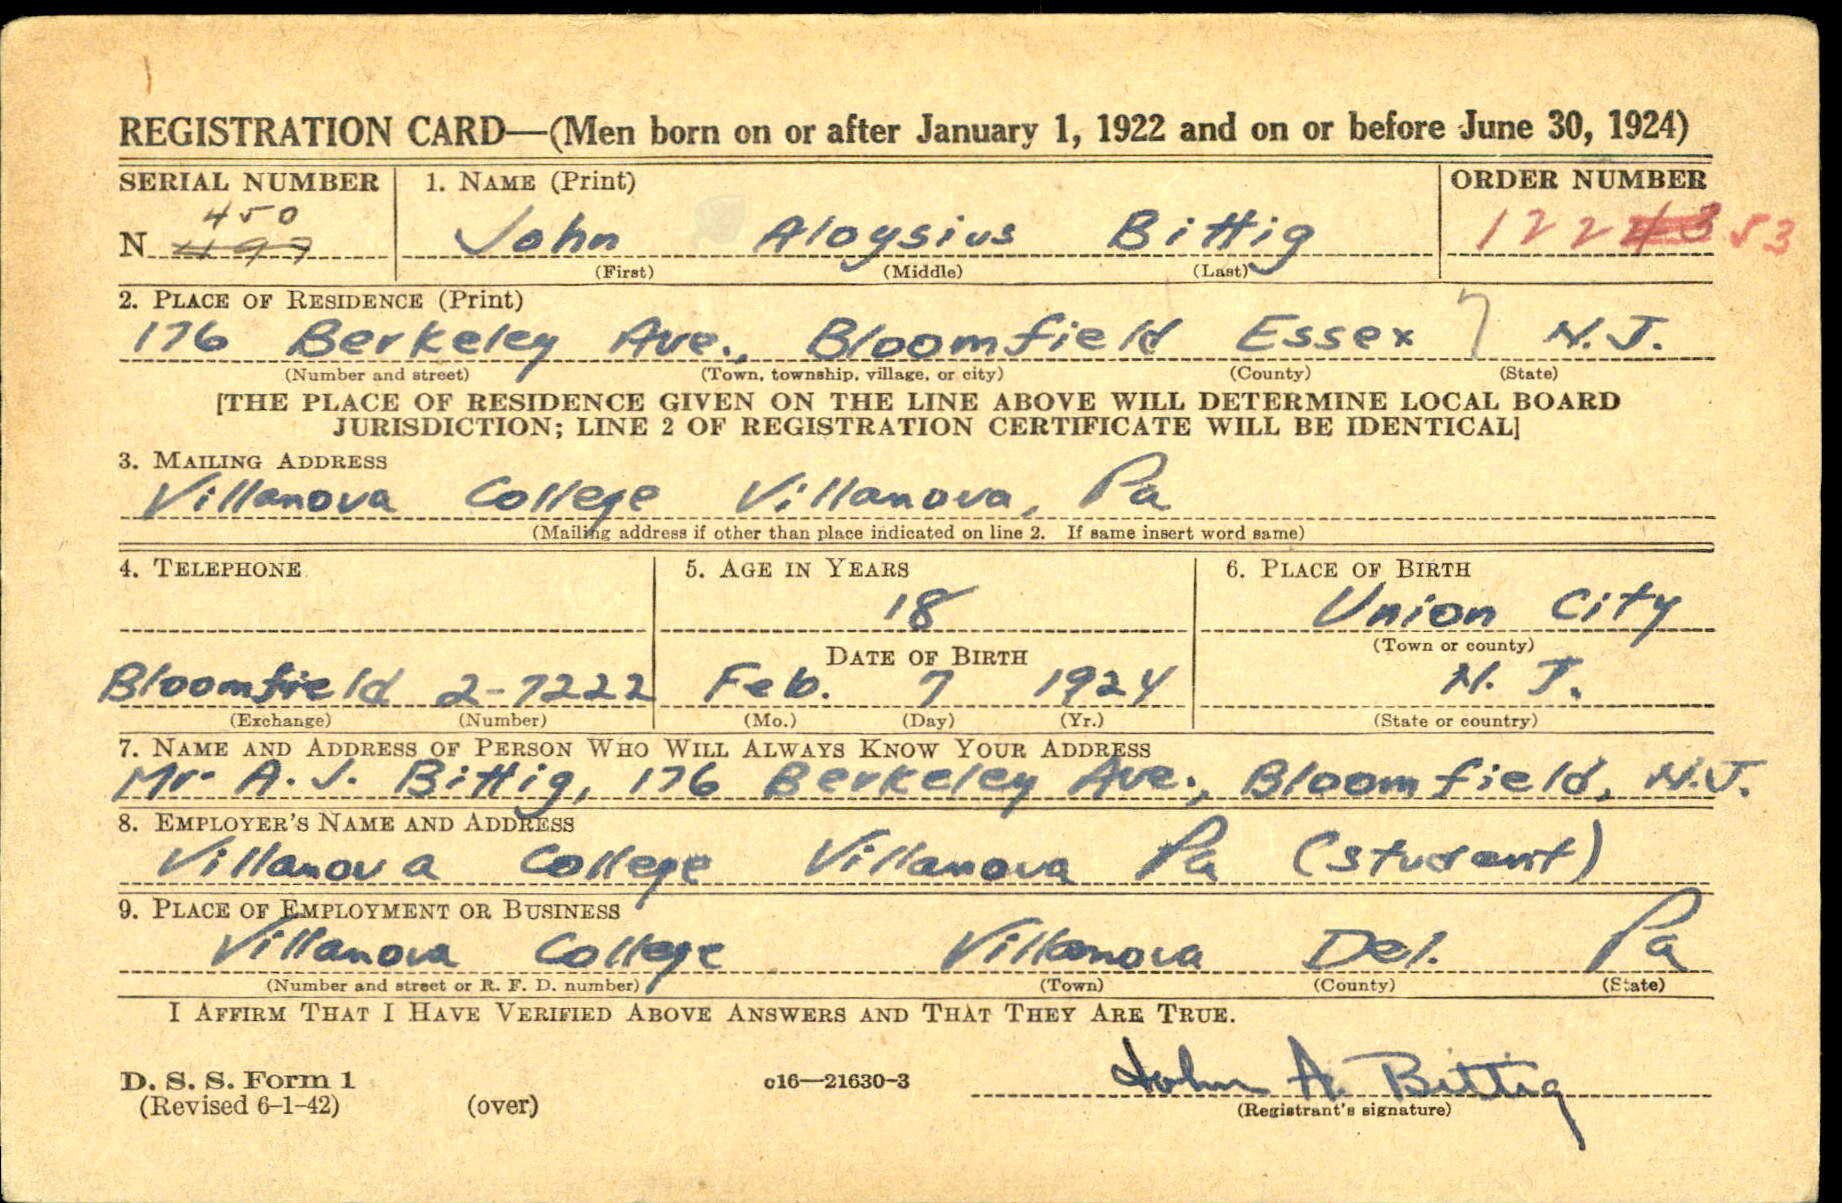 REGISTRATION CARD—(Men born on or after January 1, 1922 and on or before June 30, 1924)
SERIAL NUMBER
1. NAME (Print)
ORDER NUMBER
450
N 497
John Aloysius Bittig
12243 53
(First) (Middle) (Last)
2. PLACE OF RESIDENCE (Print)
176 Berkeley Ave., Bloomfield Essex 7 N.J.
(Number and street) (Town, township, village, or city) (County) (State)
[THE PLACE OF RESIDENCE GIVEN ON THE LINE ABOVE WILL DETERMINE LOCAL BOARD
JURISDICTION; LINE 2 OF REGISTRATION CERTIFICATE WILL BE IDENTICAL]
3. MAILING ADDRESS
Villanova College Villanova, Pa
(Mailing address if other than place indicated on line 2. If same insert word same)
4. TELEPHONE 5. AGE IN YEARS 6. PLACE OF BIRTH
18 Union City
DATE OF BIRTH (Town or county)
Bloomfield 2-7222 Feb. 7 1924 N. J.
(Exchange) (Number) (Mo.) (Day) (Yr.) (State or country)
7. NAME AND ADDRESS OF PERSON WHO WILL ALWAYS KNOW YOUR ADDRESS
Mr. A. J. Bittig, 176 Berkeley Ave., Bloomfield, N.J.
8. EMPLOYER'S NAME AND ADDRESS
Villanova College Villanova Pa (student)
9. PLACE OF EMPLOYMENT OR BUSINESS
Villanova College Villanova Del. Pa
(Number and street or R. F. D. number) (Town) (County) (State)
I AFFIRM THAT I HAVE VERIFIED ABOVE ANSWERS AND THAT THEY ARE TRUE.
D. S. S. Form 1 c16—21630-3 John A. Bittig
(Revised 6-1-42) (over) (Registrant's signature)